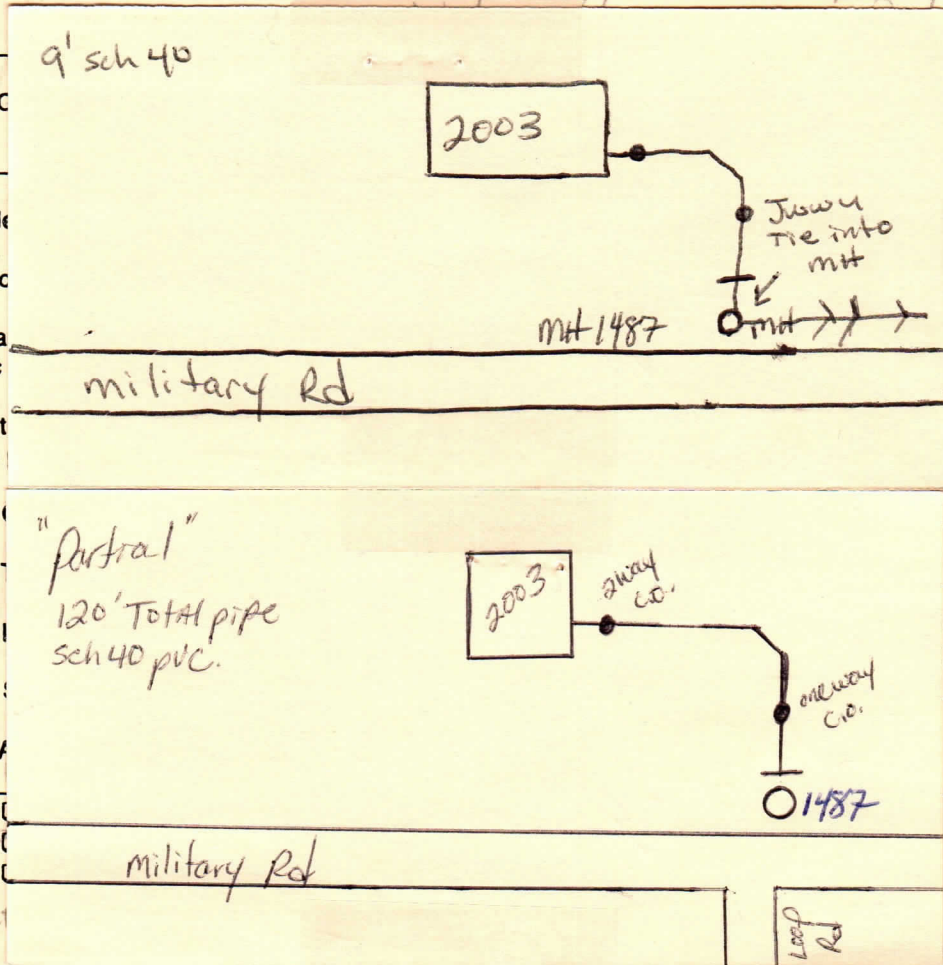 9' sch 40
2003
Tie into
MH
MH 1487
MH
military Rd
"Partial"
120' Total pipe
sch 40 pvc.
2003
2way
c.o.
oneway
c.o.
1487
military Rd
Loop
Rd